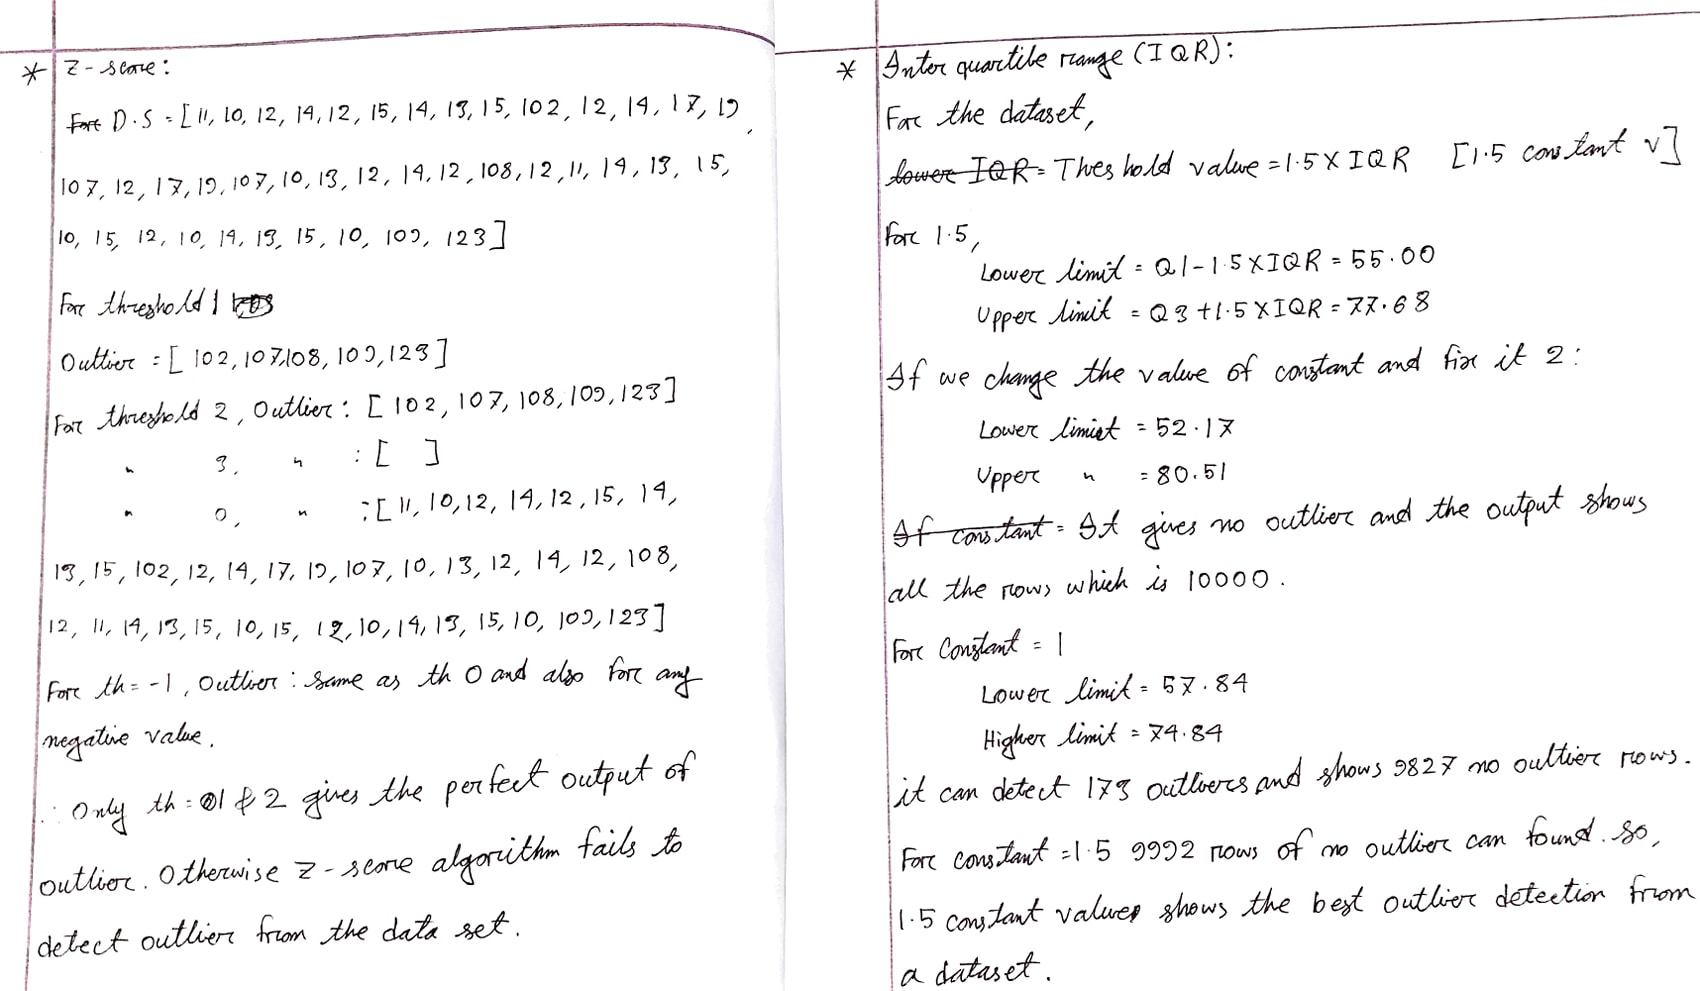 * Z-score:
For D.S = [11, 10, 12, 14, 12, 15, 14, 13, 15, 102, 12, 14, 17, 19,
107, 12, 17, 19, 107, 10, 13, 12, 14, 12, 108, 12, 11, 14, 13, 15,
10, 15, 12, 10, 14, 13, 15, 10, 109, 123]
For threshold 1
Outlier = [102, 107, 108, 109, 123]
For threshold 2, Outlier: [102, 107, 108, 109, 123]
" 3, " : [ ]
" 0, " : [11, 10, 12, 14, 12, 15, 14,
13, 15, 102, 12, 14, 17, 19, 107, 10, 13, 12, 14, 12, 108,
12, 11, 14, 13, 15, 10, 15, 12, 10, 14, 13, 15, 10, 109, 123]
For th = -1, Outlier: same as th 0 and also for any
negative value.
∴ Only th = 1 & 2 gives the perfect output of
outlier. Otherwise Z-score algorithm fails to
detect outlier from the data set.
* Inter quartile range (IQR):
For the dataset,
lower IQR = Theshold value = 1.5 X IQR [1.5 constant v]
For 1.5,
Lower limit = Q1-1.5XIQR = 55.00
Upper limit = Q3+1.5XIQR = 77.68
If we change the value of constant and fix it 2:
Lower limit = 52.17
Upper " = 80.51
If constant = It gives no outlier and the output shows
all the rows which is 10000.
For Constant = 1
Lower limit = 57.84
Higher limit = 74.84
it can detect 173 outliers and shows 9827 no outlier rows.
For constant = 1.5 9992 rows of no outlier can found. so,
1.5 constant values shows the best outlier detection from
a dataset.